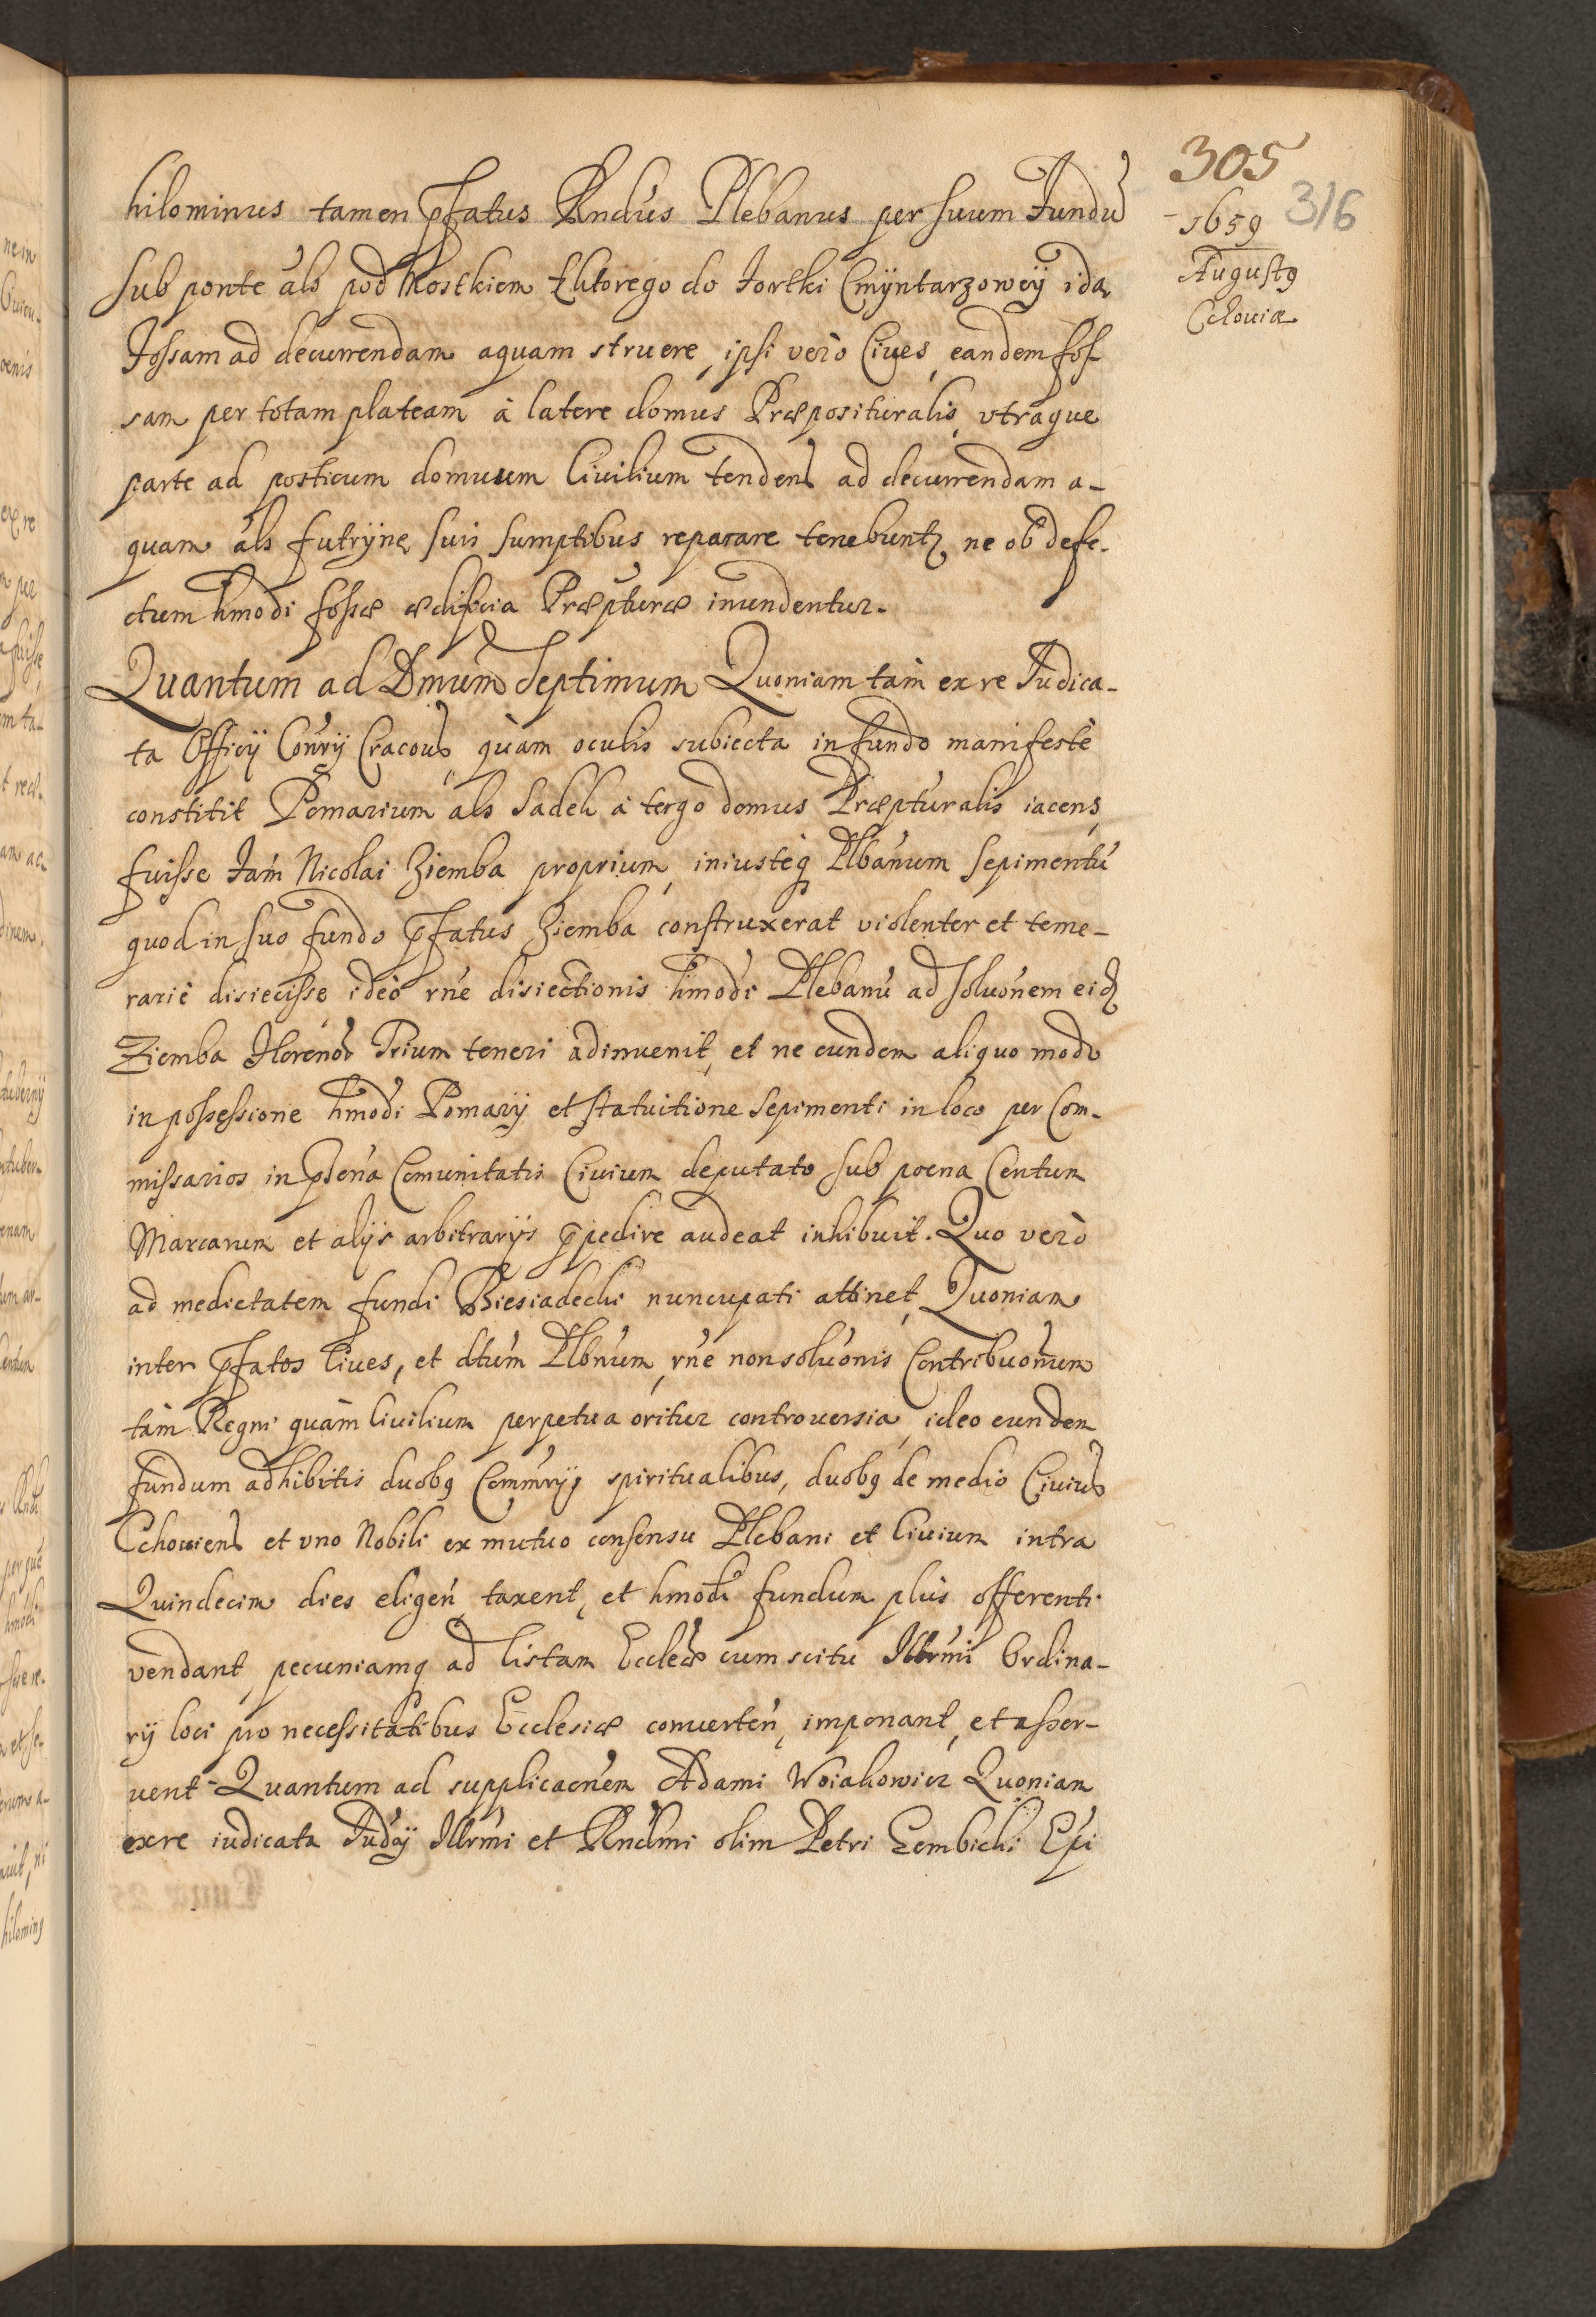 305
316
1659
Augustq
Cchoviæ
hilominus tamen pfatus Rndus Plebanus per suum Fundũ
sub ponte als pod Mostkiem z ktorego do Fortki Cmyntarzowey idą
Fossam ad decurrendam aquam struere, ipsi verò Ciues, eandem fos-
sam per totam plateam à latere domus Præposituralis, vtraque
parte ad posticum domuum Ciuilium tendens ad decurrendam a-
quam als futrÿnę suis sumptibus reparare tenebuntz ne ob defe-
ctum hmodi fossæ ædificia Præpturæ inundentur.
Quantum ad Dmum Septimum Quoniam tàm ex re Iudica-
ta Officÿ Consrÿ Cracous, quàm oculis subiecta in fundo manifestè
constitit Pomarium als Sadek à tergo domus Præpturalis iacens,
fuisse Fam Nicolai Ziemba proprium, iniusteq Plbanum sepimentũ
quod in suo fundo pfatus Ziemba construxerat violenter et teme-
rariè disiecisse, ideò rne disiectionis hmodi Plebanũ ad soluonem eid
Ziemba Florenor Trium teneri adinuenit, et ne eundem aliquo modo
in possessione hmodi Pomarÿ et statuitione sepimenti in loco per Com-
missarios in psena Comunitatis Ciuium deputato sub poena Centum
Marcarum et alÿs arbitrarÿs ppedire audeat inhibuit. Quo verò
ad medietatem fundi Biesiadecki nuncupati attinet, Quoniam
inter pfatos Ciues, et dtum Plbnum, rne non soluonis Contribuonum
tàm Regni quàm Ciuilium perpetua oritur controuersia, ideo eundem
fundum adhibitis duobq Commrÿs spiritualibus, duobq de medio Ciuium
Cchouiens et vno Nobili ex mutuo consensu Plebani et Ciuium intra
Quindecim dies eligen, taxent, et hmodi fundum plùs offerenti
vendant, pecuniamq ad Cistam Eccleæ cum scitu Illrmi Ordina-
rÿ loci pro necessitatibus Ecclesiæ conuerten, imponant, et asser-
uent - Quantum ad supplicaonem Adami Woiakowicz Quoniam
ex re iudicata Iudÿ Illrmi et Rndmi olim Petri Gembicki Epi